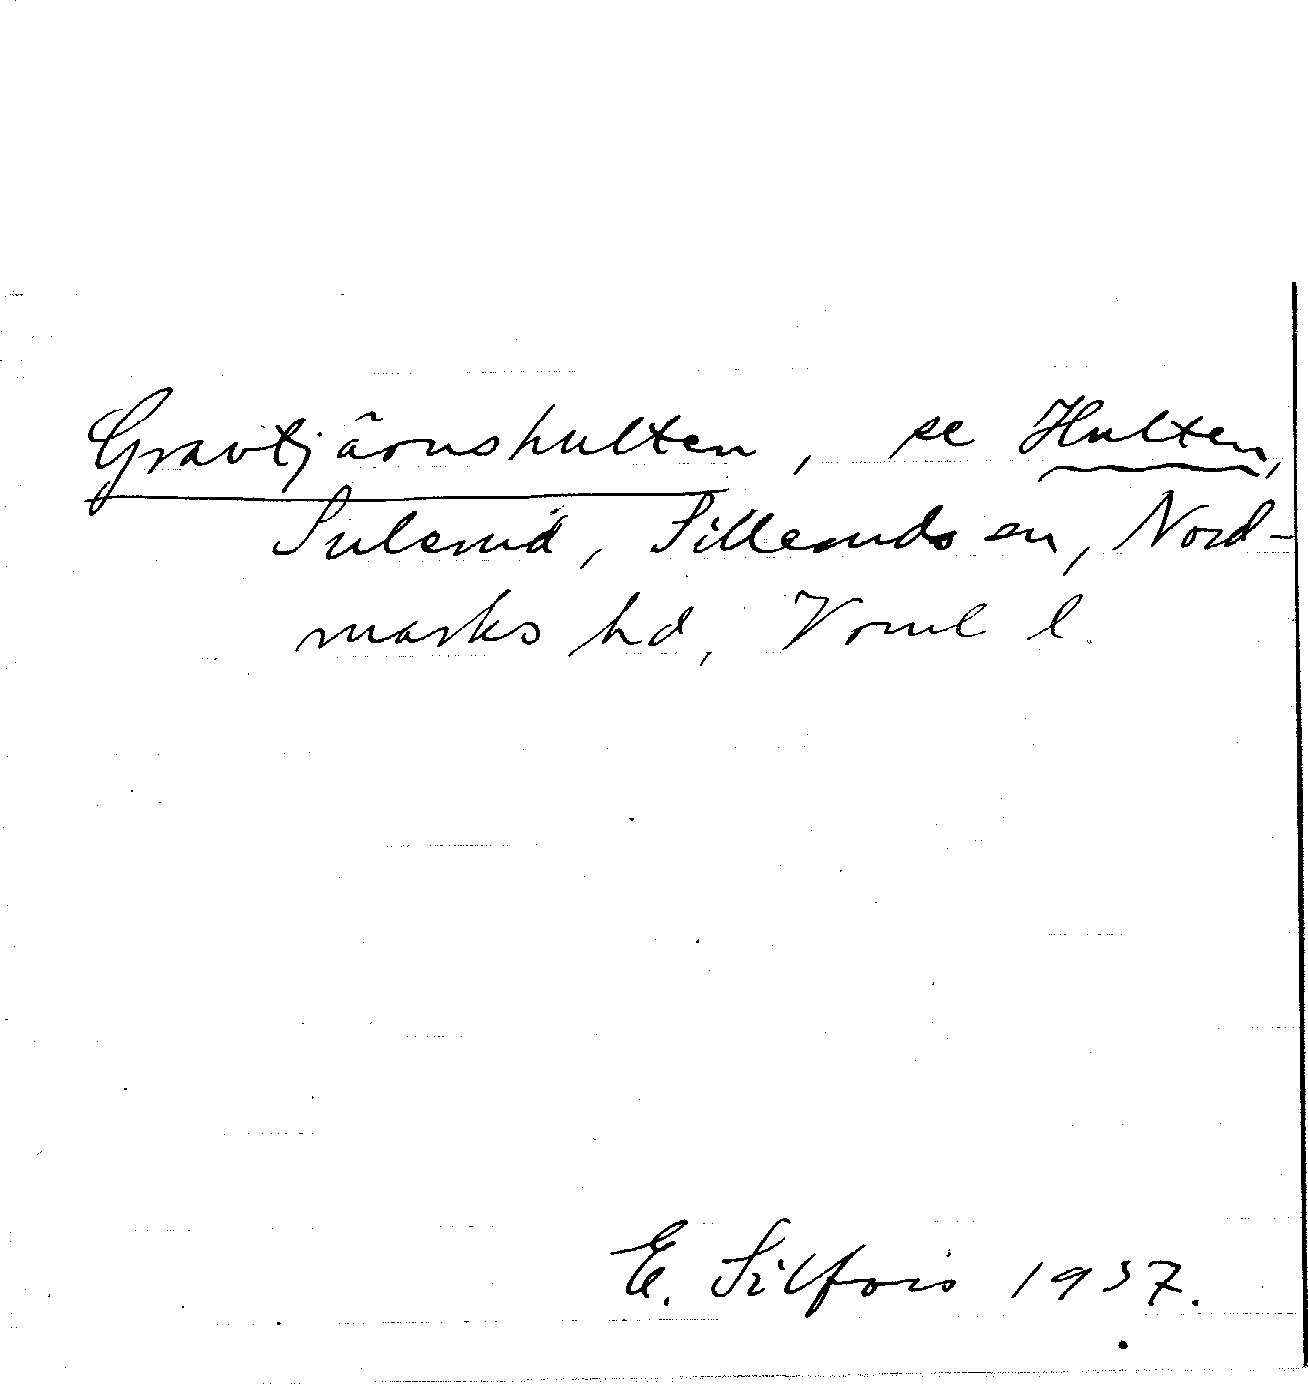 Gravtjärnshulten, se Hulten,
Sulerud, Silleruds sn, Nord-
marks hd, Vrml l.
E. Silfvis 1937.